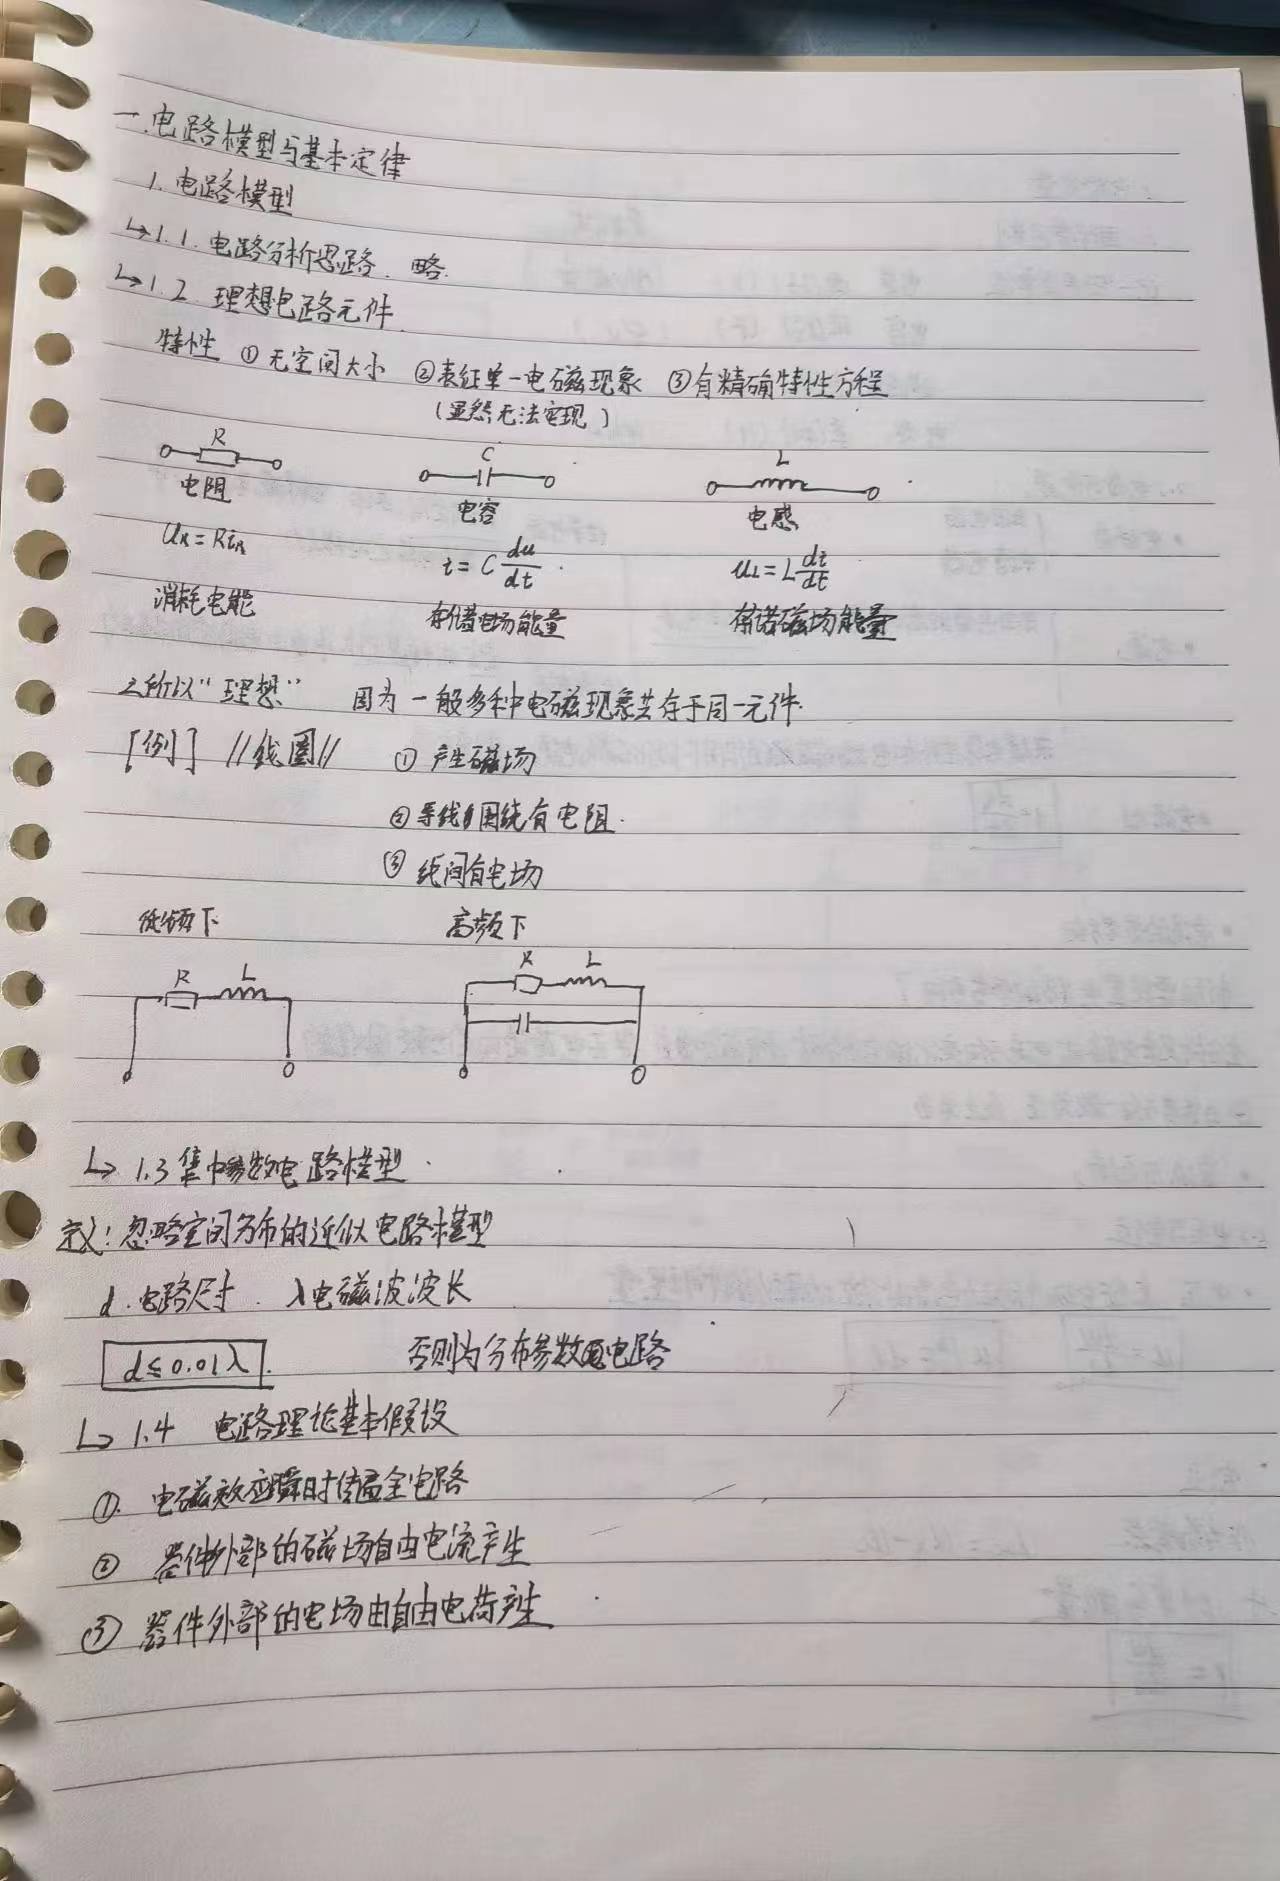 一.电路模型与基本定律
1. 电路模型
↳1.1. 电路分析思路. 略.
↳1.2 理想电路元件.
特性 ①无空间大小 ②表征单一电磁现象 ③有精确特性方程
(显然无法实现)
R C L
电阻 电容 电感
U_R=Ri_R i=C du/dt u_L=L di/dt
消耗电能 存储电场能量 存储磁场能量
之所以“理想” 因为一般多种电磁现象共存于同一元件.
[例] //线圈// ① 产生磁场
② 导线围绕有电阻.
③ 线间有电场
低频下 高频下
R L R L
↳ 1.3 集中参数电路模型.
定义: 忽略空间分布的近似电路模型
d.电路尺寸. λ电磁波波长
d≤0.01λ. 否则为分布参数电路
↳ 1.4 电路理论基本假设
①. 电磁效应瞬时传遍全电路
② 器件外部的磁场自由电流产生
③ 器件外部的电场由自由电荷产生